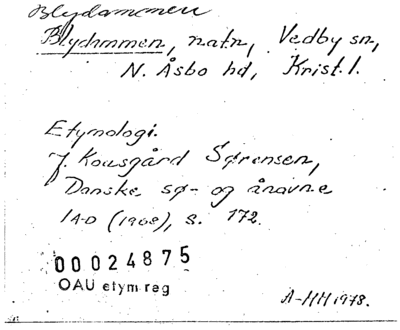 Blydammen
Blydammen, natn, Vedby sn,
N. Åsbo hd, Krist. l.
Etymologi.
J. Kousgård Sørensen,
Danske sø- og ånavne
1 A-D (1968), s. 172.
00024875
OAU etym reg
A-HH 1978.